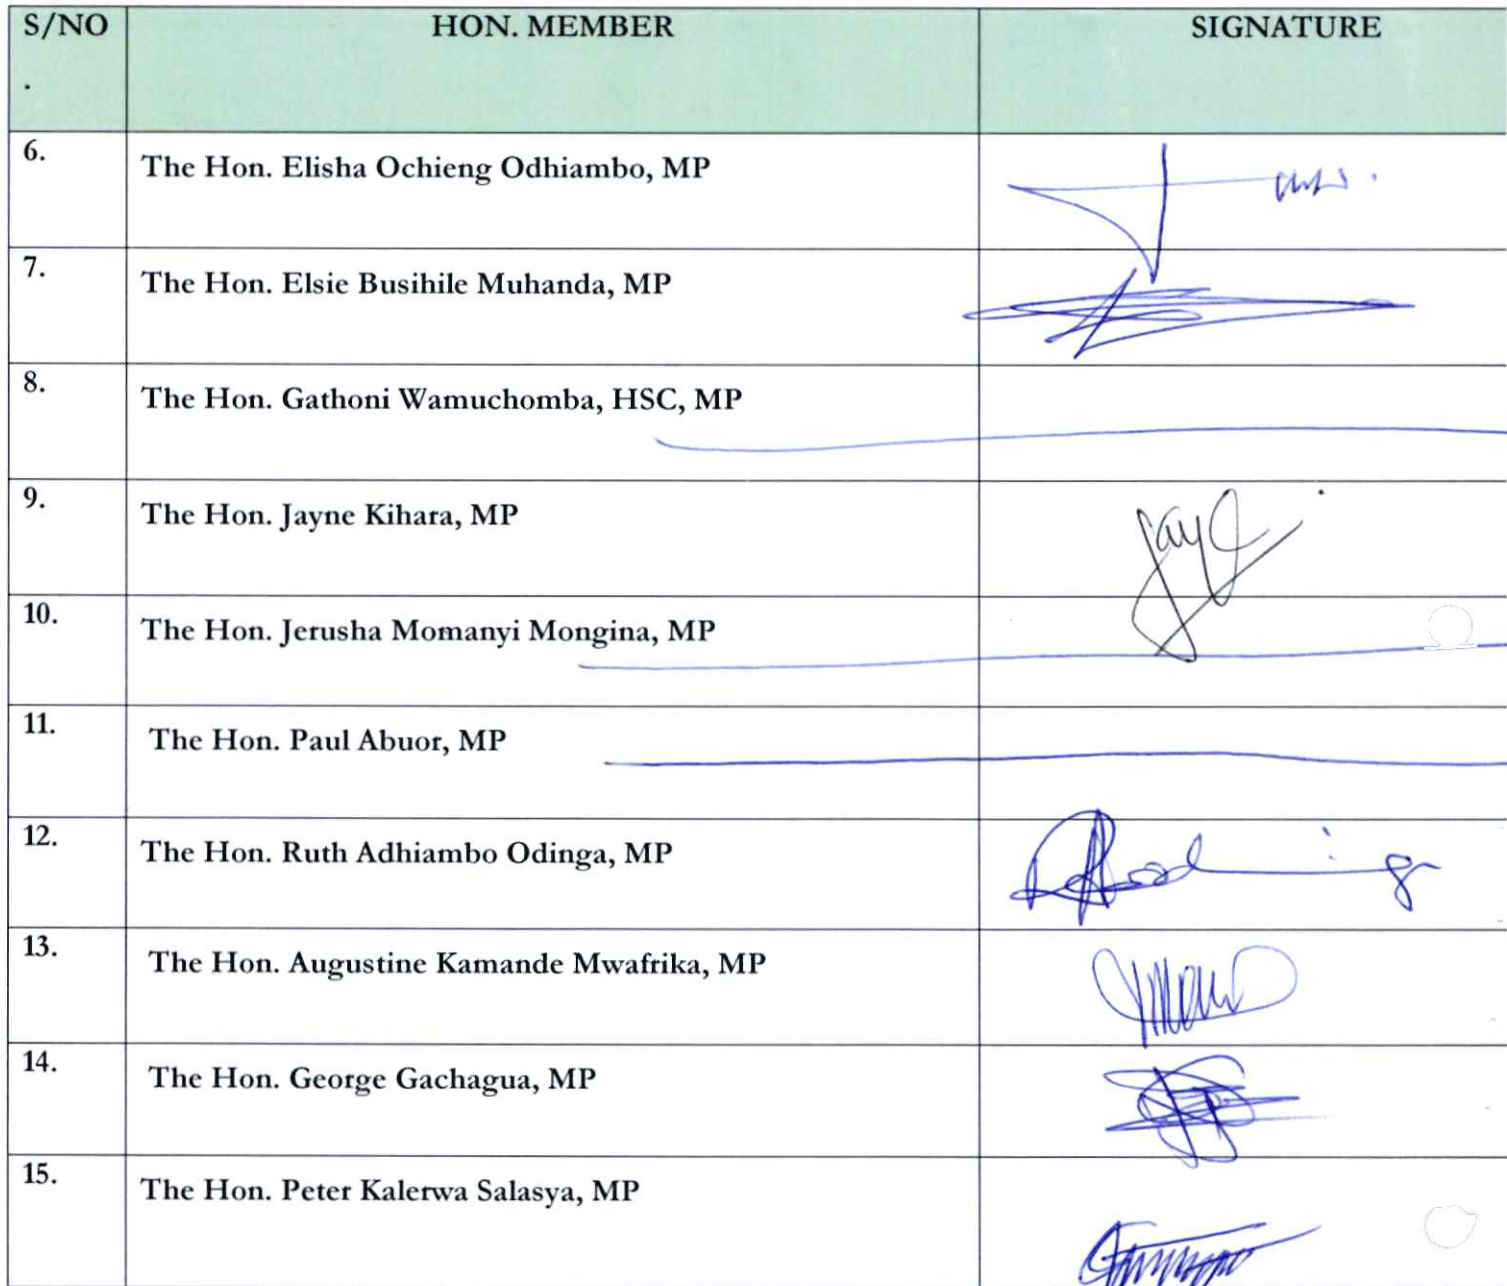 S/NO HON. MEMBER SIGNATURE
.
6. The Hon. Elisha Ochieng Odhiambo, MP
7. The Hon. Elsie Busihile Muhanda, MP
8. The Hon. Gathoni Wamuchomba, HSC, MP
9. The Hon. Jayne Kihara, MP
10. The Hon. Jerusha Momanyi Mongina, MP
11. The Hon. Paul Abuor, MP
12. The Hon. Ruth Adhiambo Odinga, MP
13. The Hon. Augustine Kamande Mwafrika, MP
14. The Hon. George Gachagua, MP
15. The Hon. Peter Kalerwa Salasya, MP